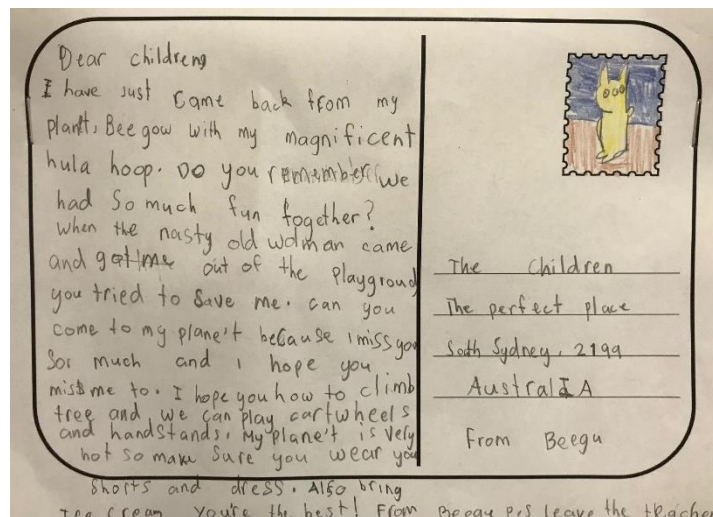 Dear children,
I have just came back from my
planit, Bee gow with my magnificent
hula hoop. Do you remember we
had so much fun together?
When the nasty old woman came
and got me out of the playground
you tried to save me. can you
come to my plane't because I miss you
Sor much and I hope you
miss me to. I hope you how to climb
tree and we can play cartwheels
and handstands. My plane't is very
hot so make sure you wear you
Shorts and dress. Also bring
Ice cream you're the best! From Beegu P.S leave the teacher
The Children
The perfect place
South Sydney, 2199
AustralIA
From Beegu